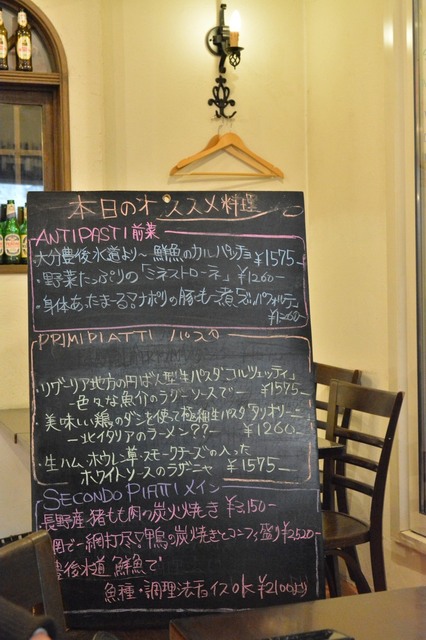 本日のオススメ料理
ANTIPASTI 前菜
大分豊後水道より〜鮮魚のカルパッチョ ¥1575−
・野菜たっぷりの「ミネストローネ」 ¥1260−
・身体あたまる?ナポリの豚もつ煮込「ズッパフォルテ」
¥1260−
PRIMI PIATTI パスタ
・リグーリア地方の円ばん型生パスタ「コルツェッティ」
−色々な魚介のラグーソースで− ¥1575−
・美味しい鶏のダシを使って極細生パスタ「タリオリーニ」
−北イタリアのラーメン?? ¥1260−
・生ハム、ホウレン草・スモークチーズの入った
ホワイトソースのラザーニャ ¥1575−
SECONDO PIATTI メイン
長野産猪もも肉の炭火焼き ¥3,150−
網で一網打尽!鴨の炭火焼きとコンフィ盛り ¥2520−
豊後水道 鮮魚で
魚種・調理法チョイスOK ¥2100より